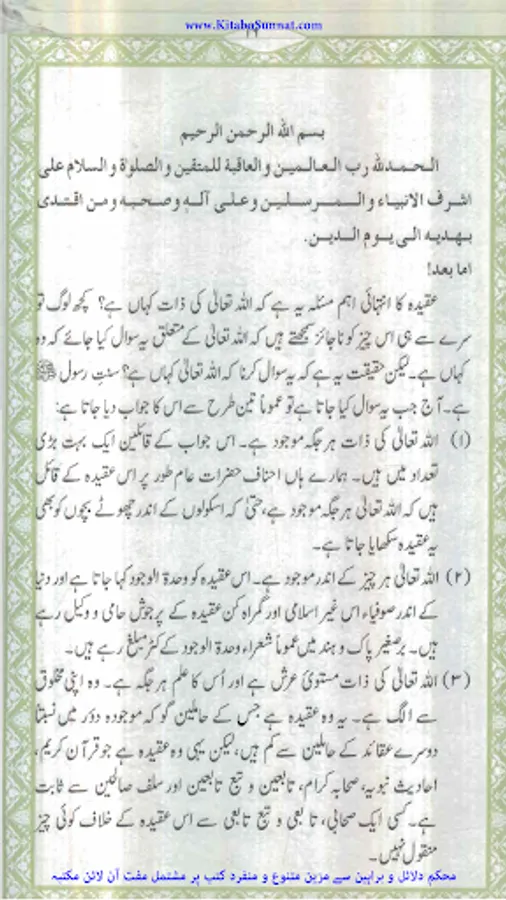 www.KitaboSunnat.com
١٦
بسم الله الرحمن الرحيم
الحمدلله رب العالمين والعاقبة للمتقين والصلوة والسلام على
اشرف الانبياء والمرسلين وعلى آله وصحبه ومن اقتدى
بهديه الى يوم الدين.
اما بعد!
عقیدہ کا انتہائی اہم مسئلہ یہ ہے کہ اللہ تعالیٰ کی ذات کہاں ہے؟ کچھ لوگ تو
سرے سے ہی اس چیز کو ناجائز سمجھتے ہیں کہ اللہ تعالیٰ کے متعلق یہ سوال کیا جائے کہ وہ
کہاں ہے۔ لیکن حقیقت یہ ہے کہ یہ سوال کرنا کہ اللہ تعالیٰ کہاں ہے؟ سنتِ رسول ﷺ
ہے۔ آج جب یہ سوال کیا جاتا ہے تو عموماً تین طرح سے اس کا جواب دیا جاتا ہے:
(۱) اللہ تعالیٰ کی ذات ہر جگہ موجود ہے۔ اس جواب کے قائلین ایک بہت بڑی
تعداد میں ہیں۔ ہمارے ہاں احناف حضرات عام طور پر اس عقیدہ کے قائل
ہیں کہ اللہ تعالیٰ ہر جگہ موجود ہے، حتیٰ کہ اسکولوں کے اندر چھوٹے بچوں کو بھی
یہ عقیدہ سکھایا جاتا ہے۔
(۲) اللہ تعالیٰ ہر چیز کے اندر موجود ہے۔ اس عقیدہ کو وحدۃ الوجود کہا جاتا ہے اور دنیا
کے اندر صوفیاء اس غیر اسلامی اور گمراہ کن عقیدہ کے پرجوش حامی و وکیل رہے
ہیں۔ برصغیر پاک و ہند میں عموماً شعراء وحدۃ الوجود کے کٹر مبلغ رہے ہیں۔
(۳) اللہ تعالیٰ کی ذات مستویٔ عرش ہے اور اُس کا علم ہر جگہ ہے۔ وہ اپنی مخلوق
سے الگ ہے۔ یہ وہ عقیدہ ہے جس کے حاملین گو کہ موجودہ دور میں نسبتاً
دوسرے عقائد کے حاملین سے کم ہیں، لیکن یہی وہ عقیدہ ہے جو قرآن کریم،
احادیث نبویہ، صحابہ کرام، تابعین و تبع تابعین اور سلف صالحین سے ثابت
ہے۔ کسی ایک صحابی، تابعی و تبع تابعی سے اس عقیدہ کے خلاف کوئی چیز
منقول نہیں۔
محکم دلائل و براہین سے مزین متنوع و منفرد کتب پر مشتمل مفت آن لائن مکتبہ